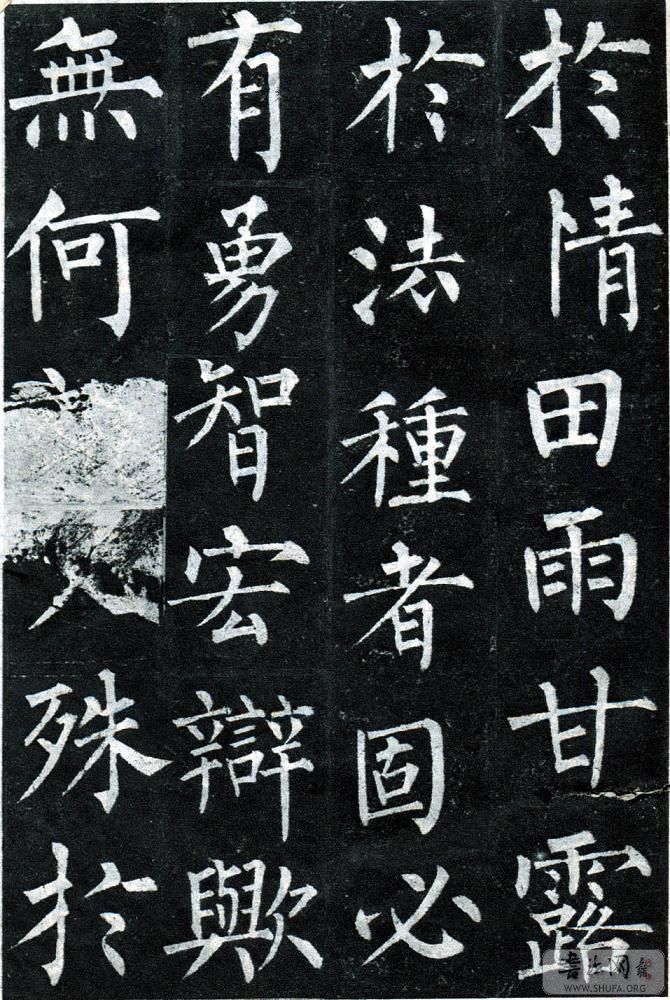 於情田雨甘露
於法種者固必
有勇智宏辯歟
無何殊於
書法网
WWW.SHUFA.ORG